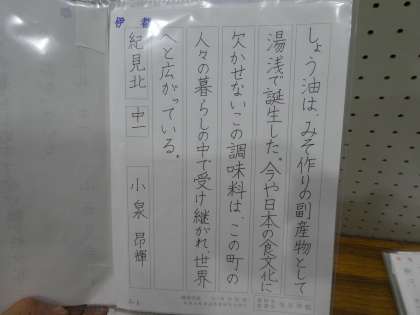 しょう油は、みそ作りの副産物として
湯浅で誕生した。今や日本の食文化に
欠かせないこの調味料は、この町の
人々の暮らしの中で受け継がれ、世界
へと広がっている。
伊都
紀見北
中一
小泉 昂輝